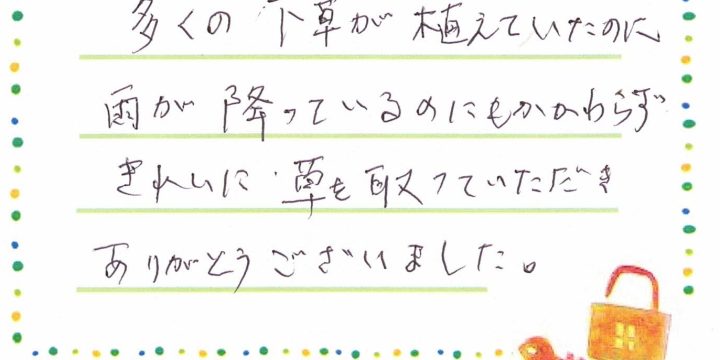 多くの下草が植えていたのに
雨が降っているのにもかかわらず
きれいに草を取っていただき
ありがとうございました。